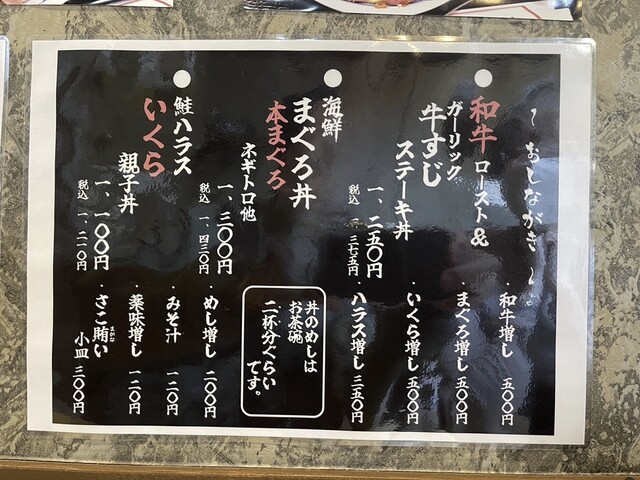 ～おしながき～
● 和牛 ロースト&
ガーリック
牛すじ
ステーキ丼
一、二五〇円
税込 一、三七五円
● 海鮮
まぐろ丼
本まぐろ
ネギトロ他
一、三〇〇円
税込 一、四三〇円
● 鮭ハラス
いくら
親子丼
一、一〇〇円
税込 一、二一〇円
・和牛増し 五〇〇円
・まぐろ増し 五〇〇円
・いくら増し 五〇〇円
・ハラス増し 三五〇円
丼のめしは
お茶碗
二杯分くらい
です。
・めし増し 二〇〇円
・みそ汁 一二〇円
・薬味増し 一二〇円
・さこ賄い 小皿 三〇〇円
まかな